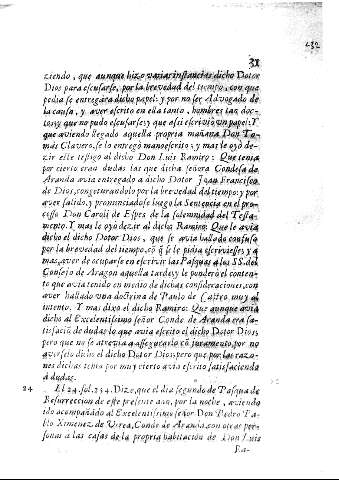 232
31
ziendo, que aunque hizo varias instancias dicho Dotor
Dios para escusarse, por la brevedad del tiempo, con que
pedia se entregara dicho papel: y por no ser Advogado de
la causa, y aver escrito en ella tanto, hombres tan doc-
tos; y que no pudo escusarse; y que assi escrivió un papel: Y
que aviendo llegado aquella propria mañana Don To-
màs Clavero, se lo entregò manoescrito; y mas le oyó de-
zir este testigo al dicho Don Luis Ramiro; Que tenia
por cierto eran dudas las que dicha señora Condesa de
Aranda avia entregado a dicho Dotor Juan Francisco
de Dios, conjeturandolo por la brevedad del tiempo: y por
aver salido, y pronunciadose luego la Sentencia en el pro-
cesso Don Caroli de Espes de la solemnidad del Testa-
mento. Y mas le oyó dezir al dicho Ramiro: Que le avia
dicho el dicho Dotor Dios, que se avia hallado confuso
por la brevedad del tiempo, cō q̄ se le pidia escriviesse; y a
mas, aver de ocuparse en escrivir las Pasquas a los SS. del
Consejo de Aragon aquella tarde; y le ponderò el conten-
to que avia tenido en medio de dichas consideraciones, con
aver hallado una doctrina de Paulo de Castro muy al
intento. Y mas dixo el dicho Ramiro: Que aunque avia
dicho al Excelentissimo señor Conde de Aranda era sa-
tisfaciō de dudas lo que avia escrito el dicho Dotor Dios,
pero que no se atrevia a assegurarlo cō juramento, por no
averselo dicho el dicho Dotor Dios; pero que por las razo-
nes dichas tenia por muy cierto avia escrito satisfaciendo
a dudas.
24 El 24. fol. 254. Dize, que el dia segundo de Pasqua de
Resurreccion de este presente año, por la noche, aviendo
ido acompañado al Excelentissimo señor Don Pedro Pa-
blo Ximenez de Urrea, Conde de Aranda, con otras per-
sonas a las casas de la propria habitacion de Don Luis
Ra-